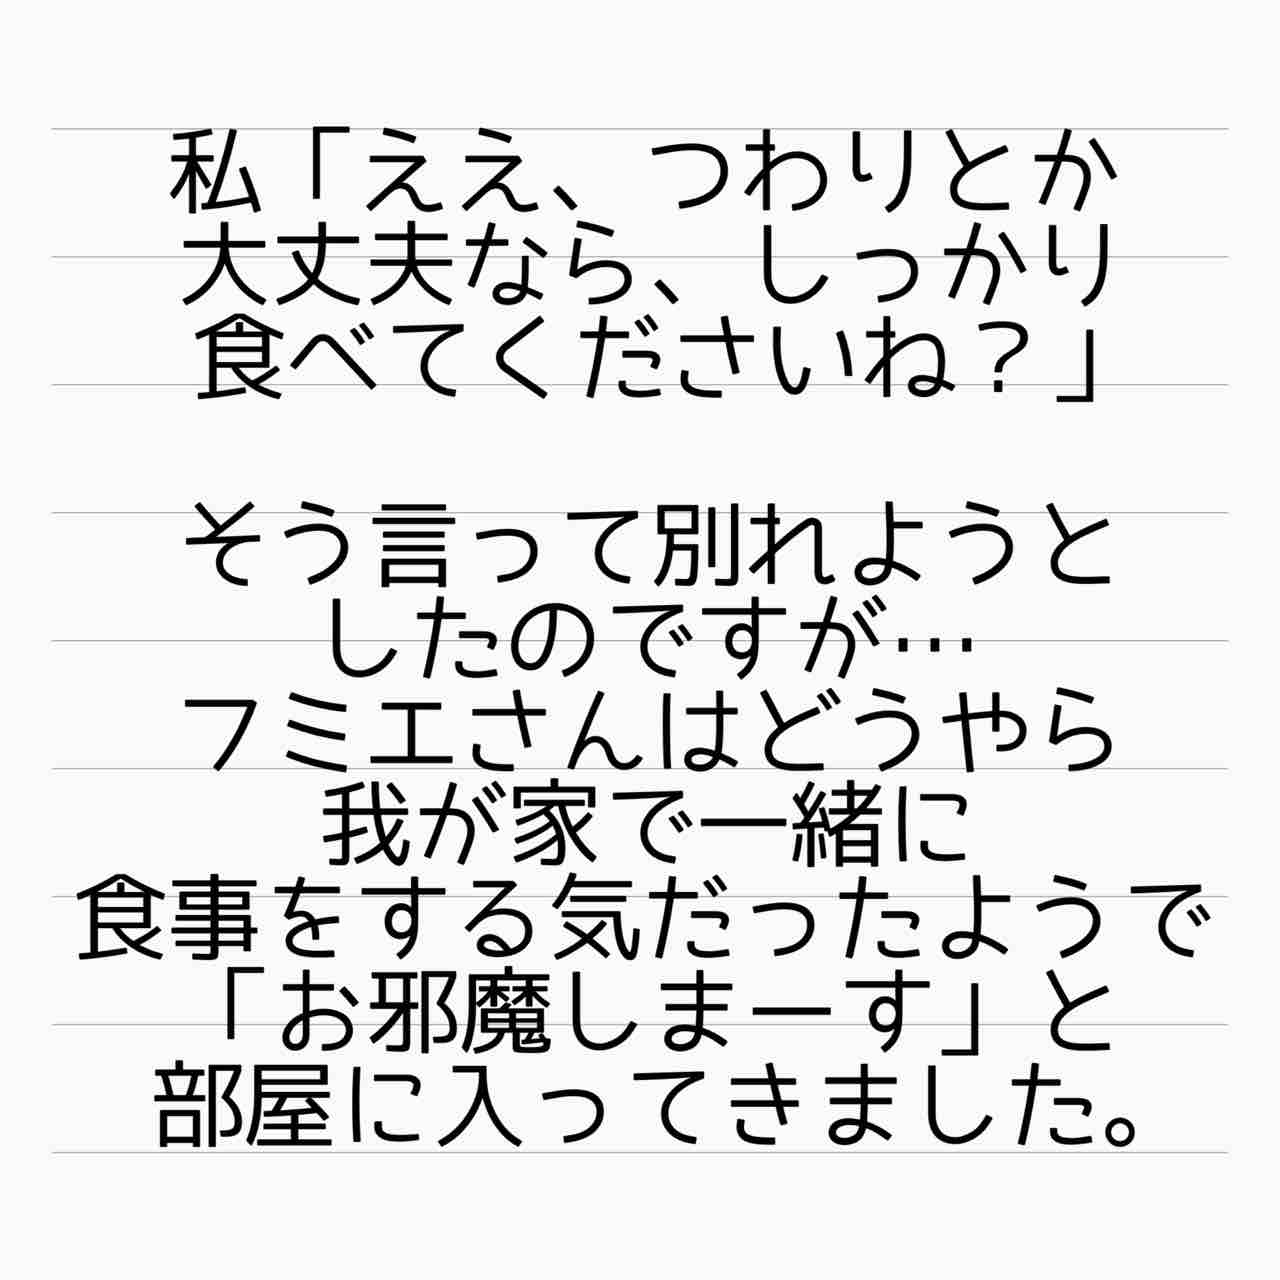 私「ええ、つわりとか
大丈夫なら、しっかり
食べてくださいね？」
そう言って別れようと
したのですが…
フミエさんはどうやら
我が家で一緒に
食事をする気だったようで
「お邪魔しまーす」と
部屋に入ってきました。